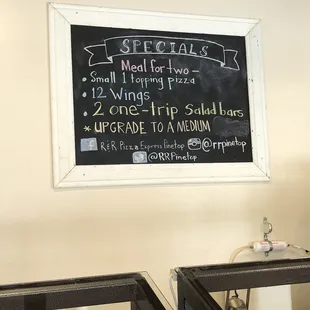 SPECIALS
Meal for two -
• Small 1 topping pizza
• 12 Wings
• 2 one-trip Salad bars
* UPGRADE TO A MEDIUM
f R&R Pizza Express Pinetop @rrpinetop
@RRPinetop